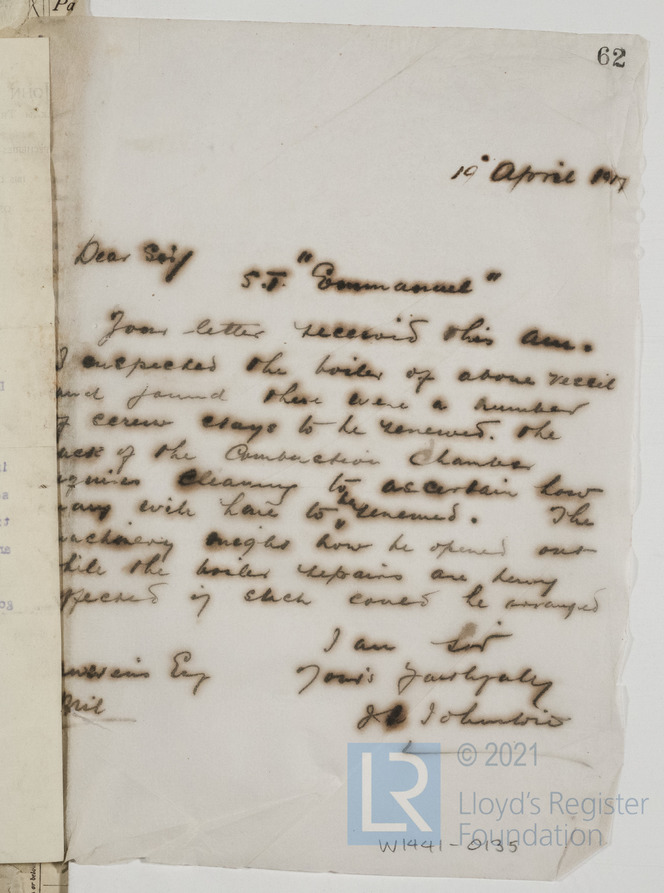 Pa
62
19 April 1917
Dear Sir
S.T. "Emmanuel"
Your letter received this am.
I inspected the boiler of above vessel
and found there were a number
of screw stays to be renewed. The
ack of the Combustion Chamber
quires cleaning to ascertain how
any will have to be renewed. The
achinery might now be opened out
hile the boiler repairs are being
ffected if such could be arranged
I am Sir
Esq Yours faithfully
J Johnston
© 2021
LR
Lloyd's Register
Foundation
W1441-0135